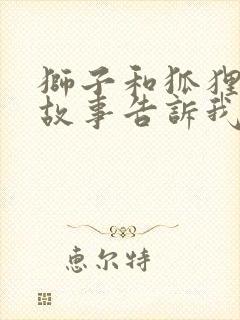 獅子和狐狸
故事告訴我
恵尔特